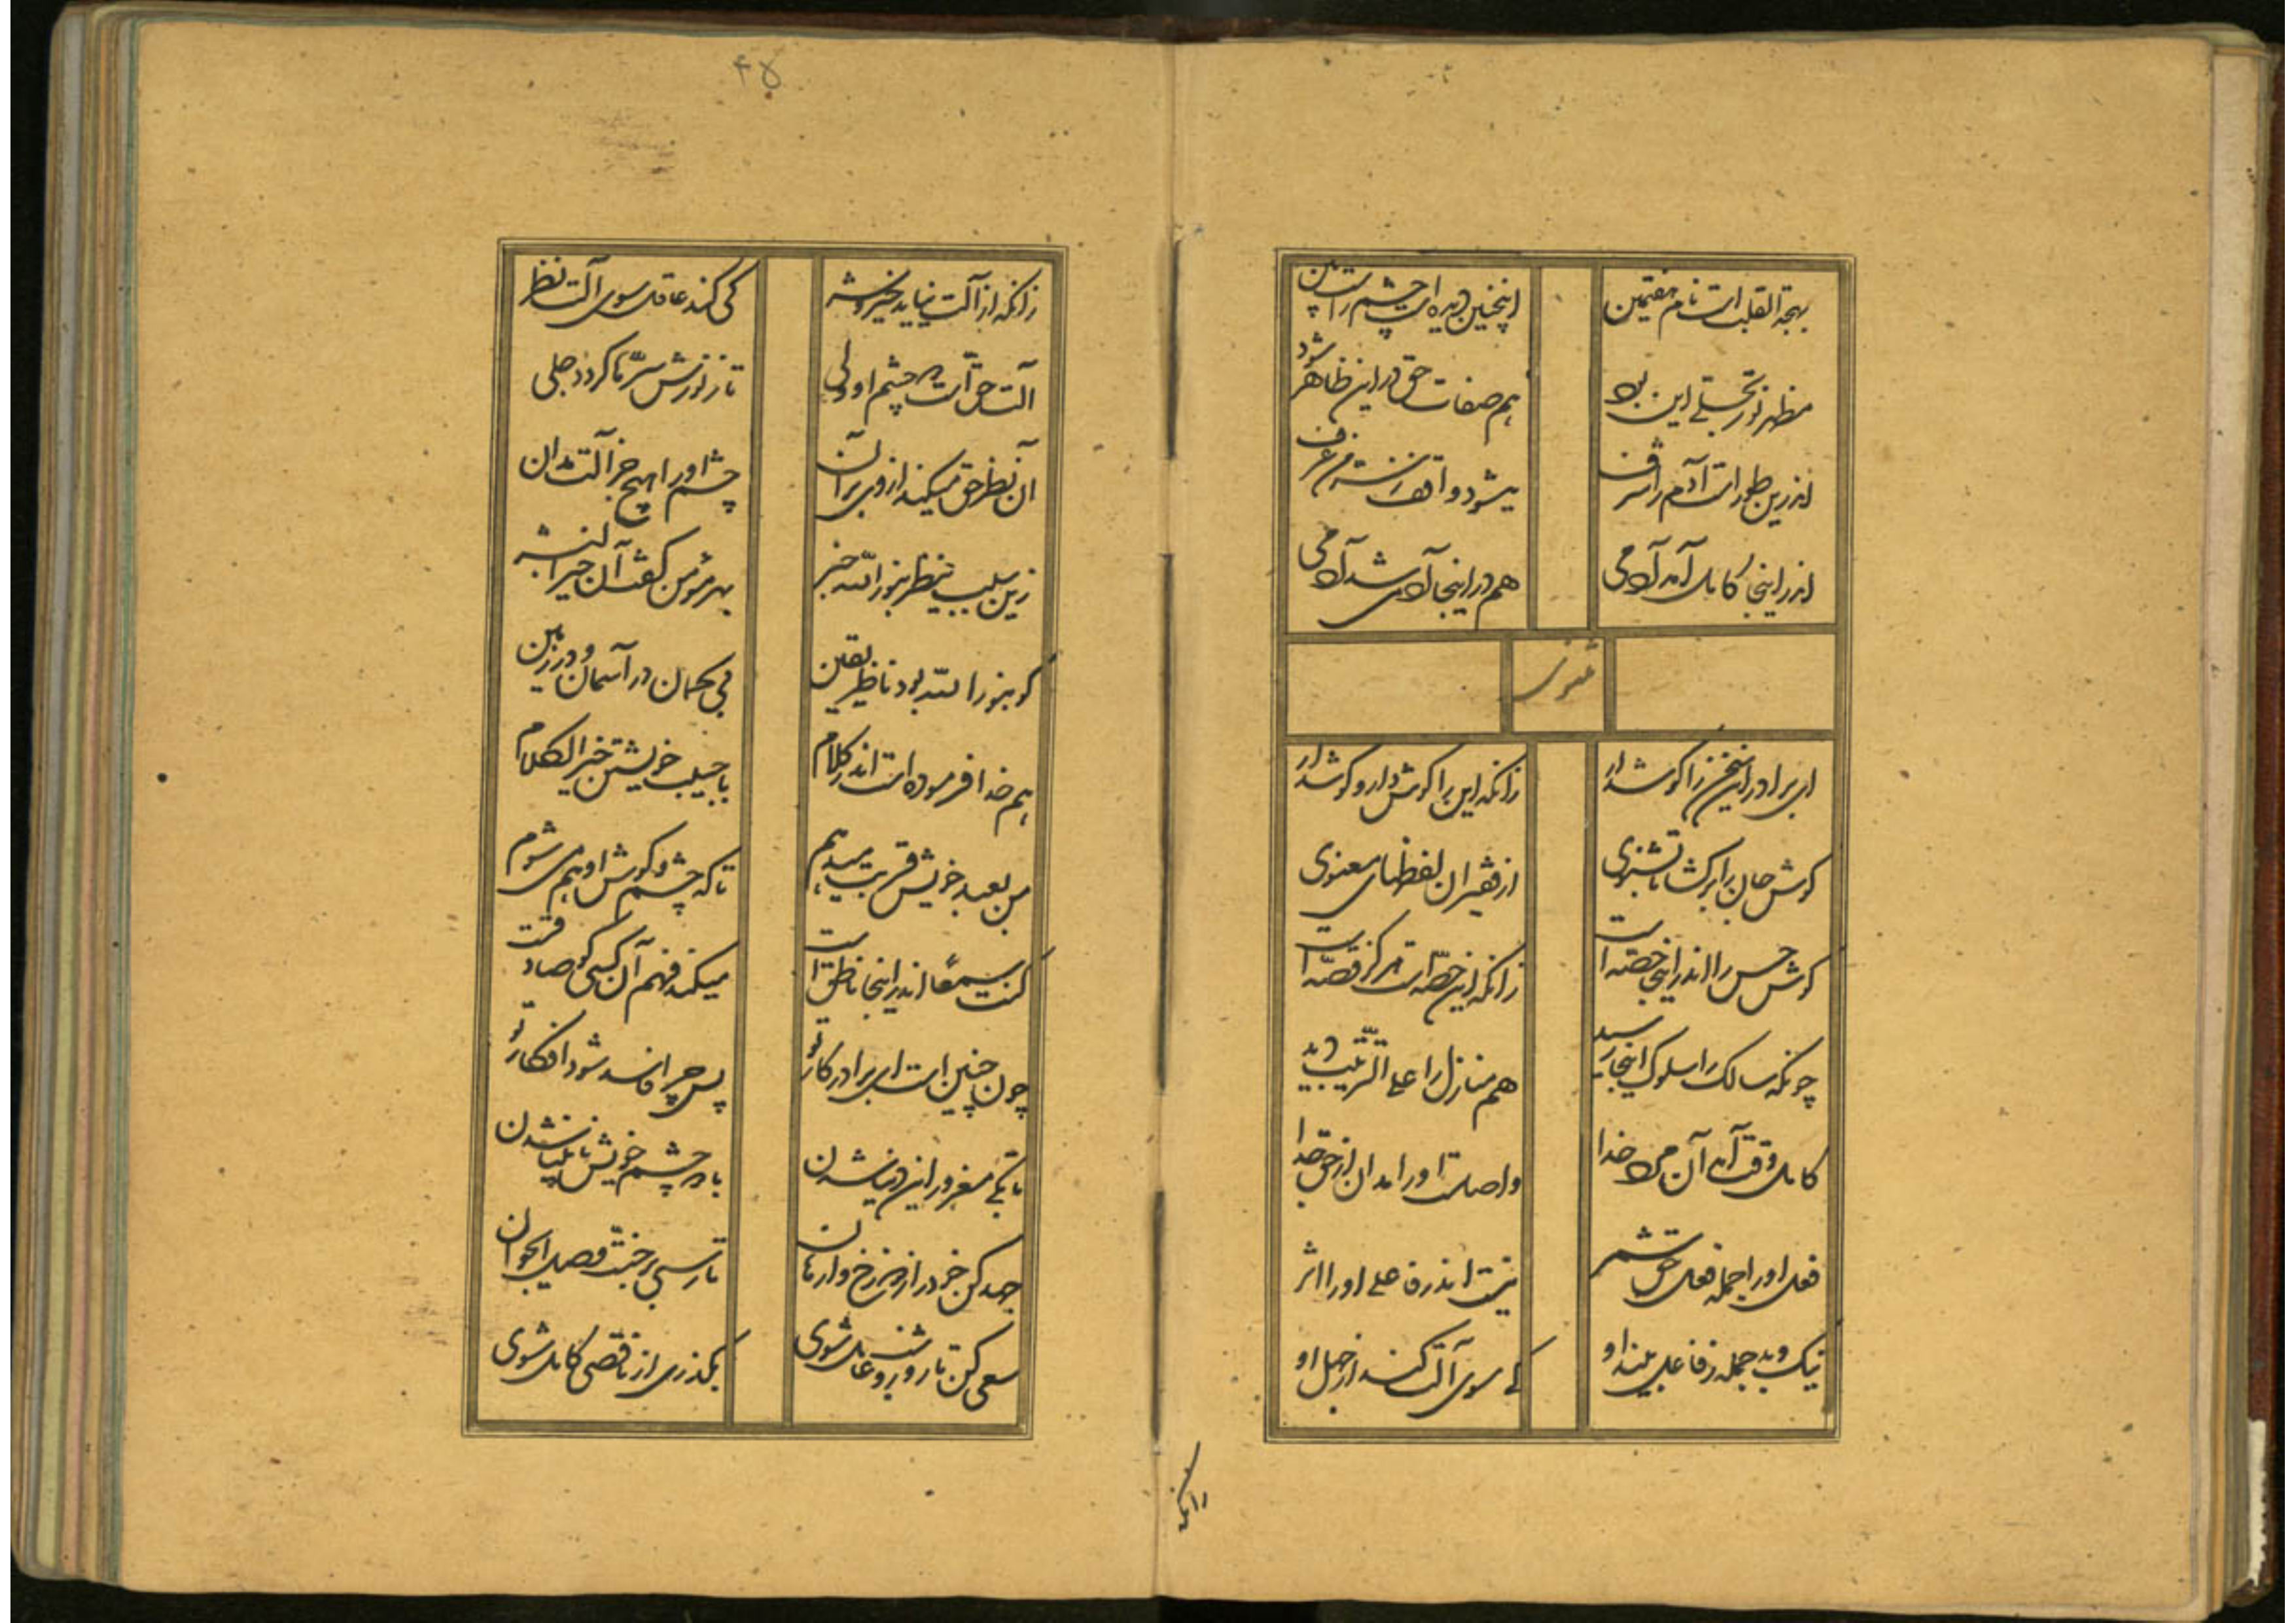 بهجة القلب است نام هفتمین اینچنین دیده است چشم راست بین
مظهر نور تجلی این بود هم صفات حق در این ظاهر شود
اندرین طور است آدم را شرف میشود واقف ز سر من عرف
اندر اینجا کامل آمد آدمی هم در اینجا آدمی شد آدمی
مثنوی
ای برادر این سخن را گوشدار زانکه این را گوش دار و گوشدار
گوش جان را برگشا تا بشنوی از فقیران لفظهای معنوی
گوش حس را اندر اینجا حصه است زانکه این حصه است هرکز قصه است
چونکه سالک را سلوک اینجا رسید هم منازل را علی الترتیب دید
کامل وقت آمد آن مرد خدا واصلست او را مدان از حق جدا
فعل او را جمله فعل حق شمر نیست اندر فاعلی او را اثر
نیک و بد جمله ز فاعل بیند او کی سوی آلت کند از جهل او
زانکه
۴۵
زانکه از آلت نیاید خیر و شر کی کند عاقل سوی آلت نظر
آلت حق است هر چشم او ولی تا ز نورش سرّها گردد جلی
آن نظر حق میکند از وی بر آن چشم او را هیچ جز آلت مدان
زین سبب ینظر بنور الله خبر بهر مؤمن گفت آن خیر البشر
کو بنور الله بود ناظر یقین بی گمان در آسمان و در زمین
هم خدا فرموده است اندر کلام با حبیب خویشتن خیر الکلام
من بعبد خویش قربت میدهم تا که چشم و گوش او هم می شوم
کنت سمعا اندر اینجا ناطق است میکند فهم آن کسی کو صادقست
چون چنین است ای برادر کار تو پس چرا فاسد شود افکار تو
تا بکی مغرور این دنیا شدن با دو چشم خویش نابینا شدن
جهد کن خود را از دوزخ وارهان تا رسی بر جنت و صلب الجوان
سعی کن تا روشن و عامل شوی بگذری از ناقصی کامل شوی